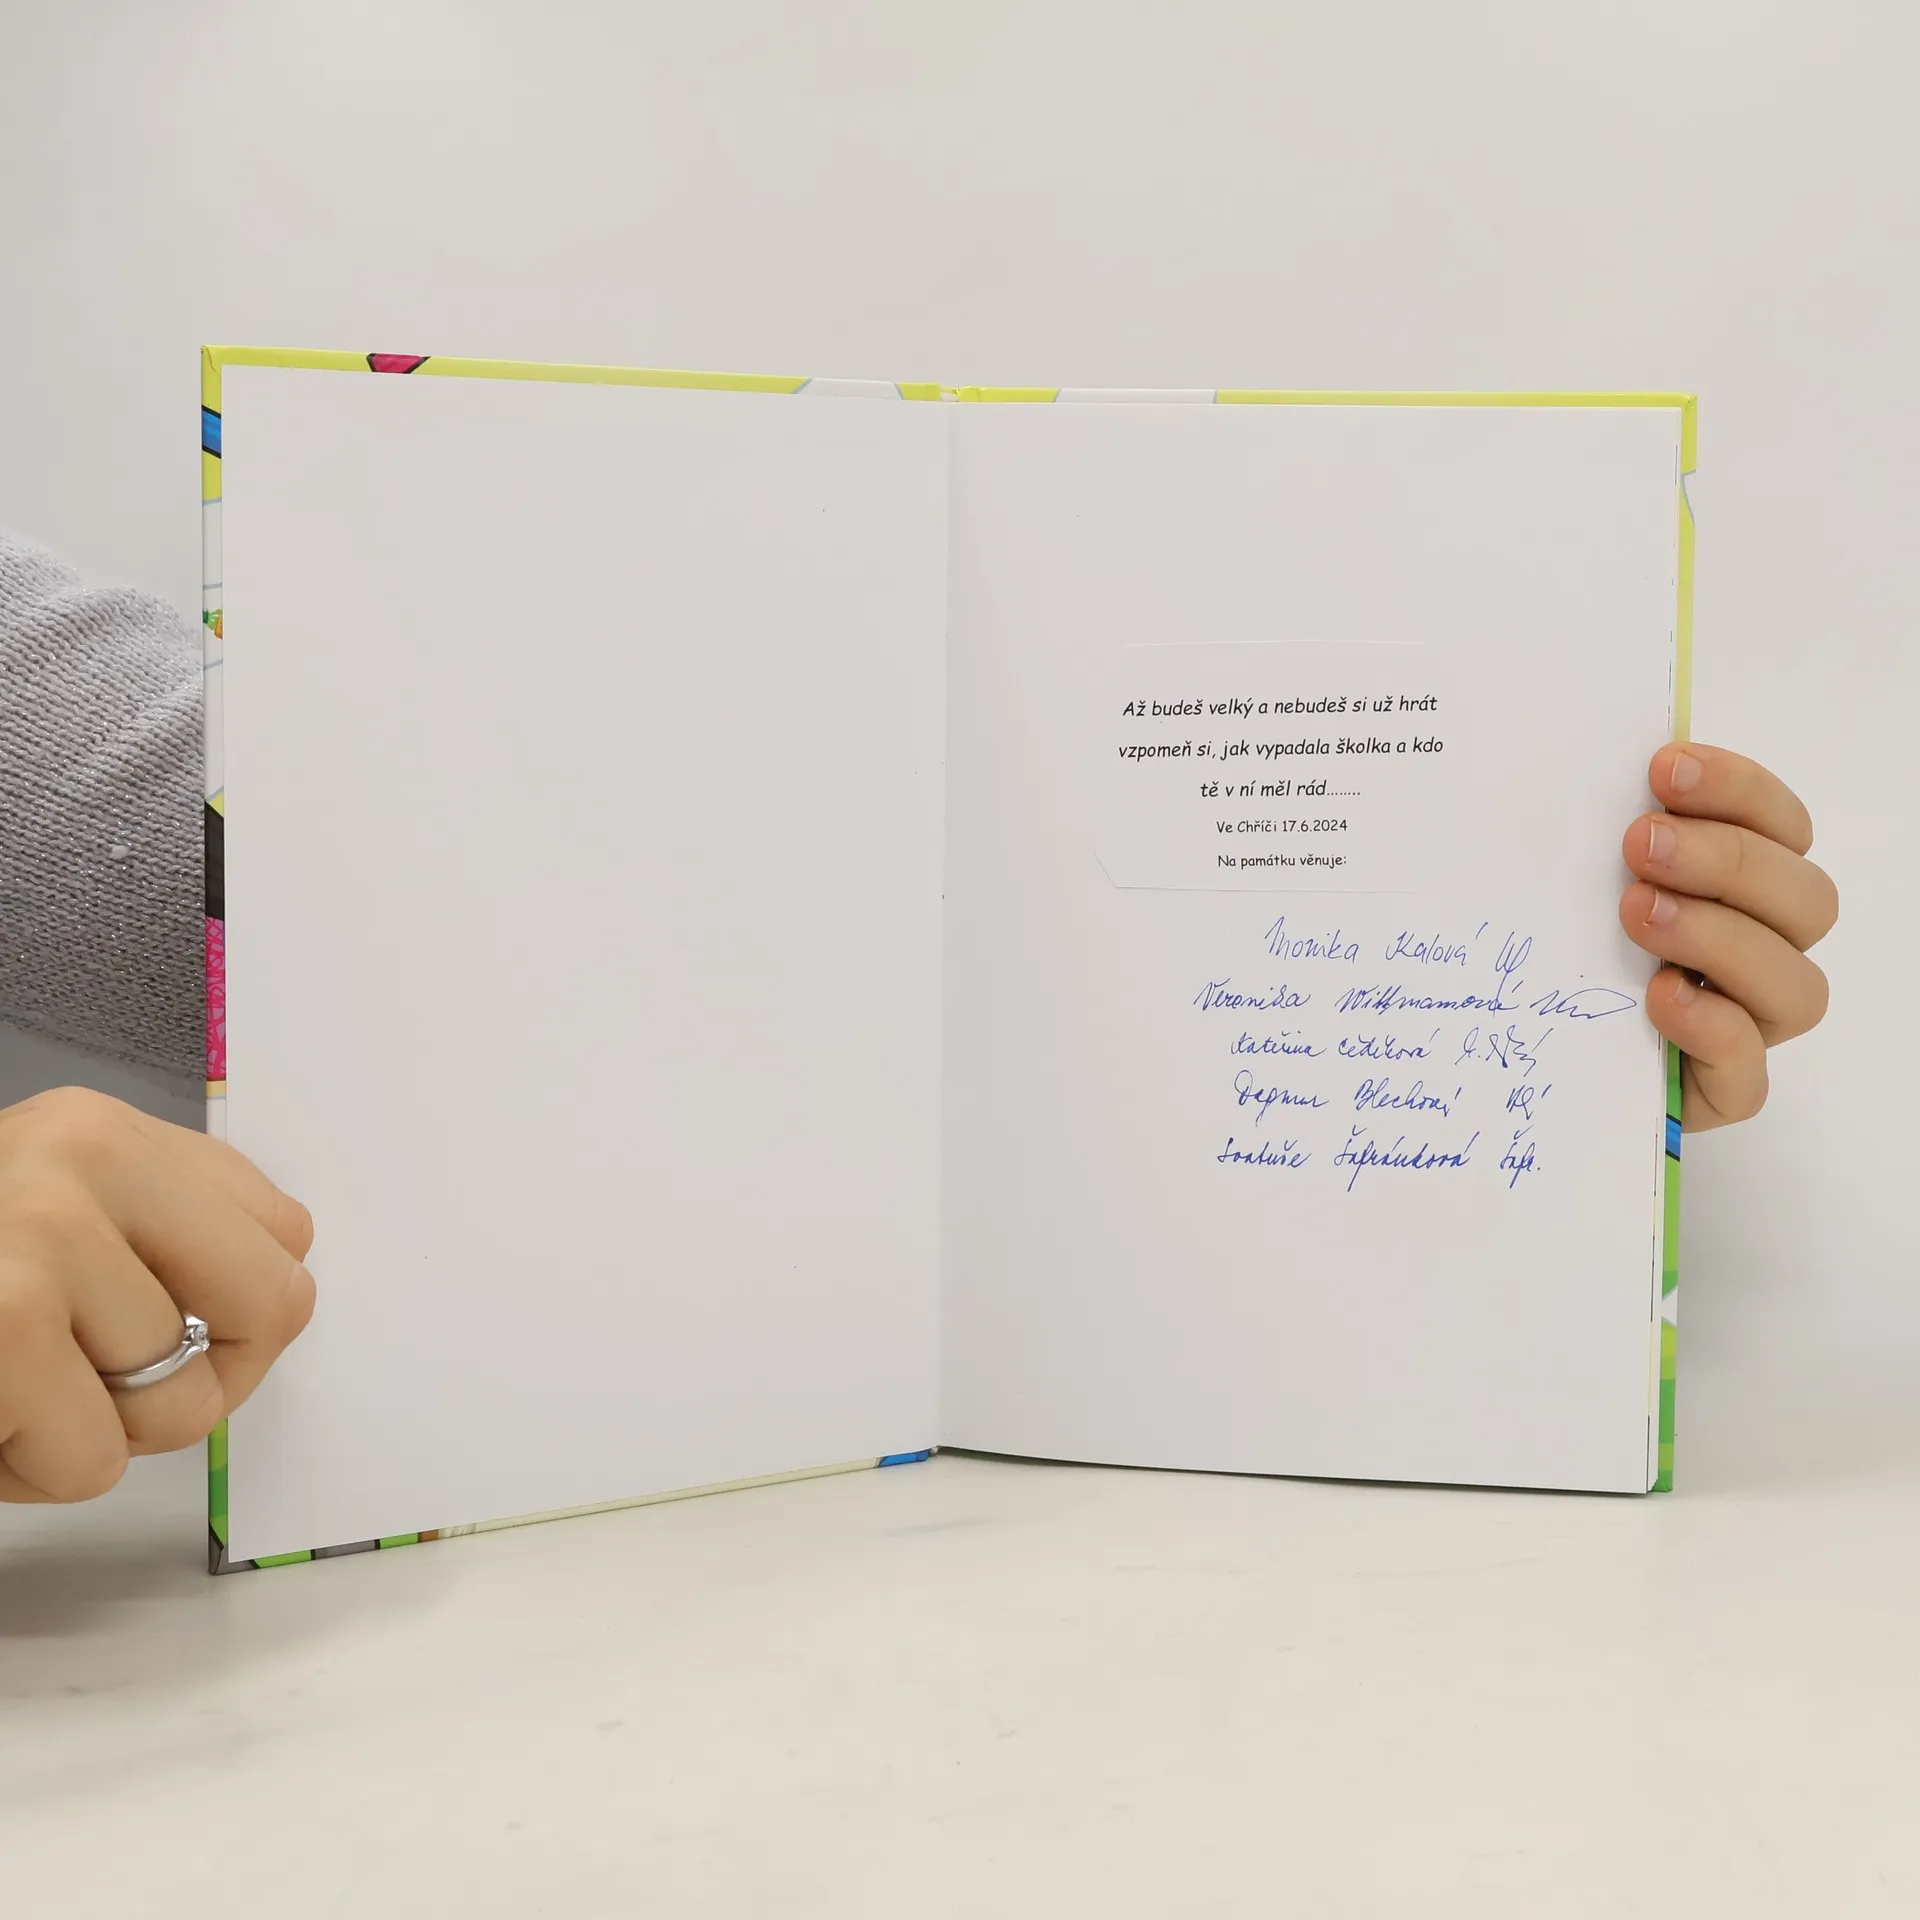 Až budeš velký a nebudeš si už hrát
vzpomeň si, jak vypadala školka a kdo
tě v ní měl rád........
Ve Chříči 17.6.2024
Na památku věnuje:
Monika Kalová
Veronika Wittmannová
Kateřina
Dagmar Blechová
Svatuše Šafránková Šafr.